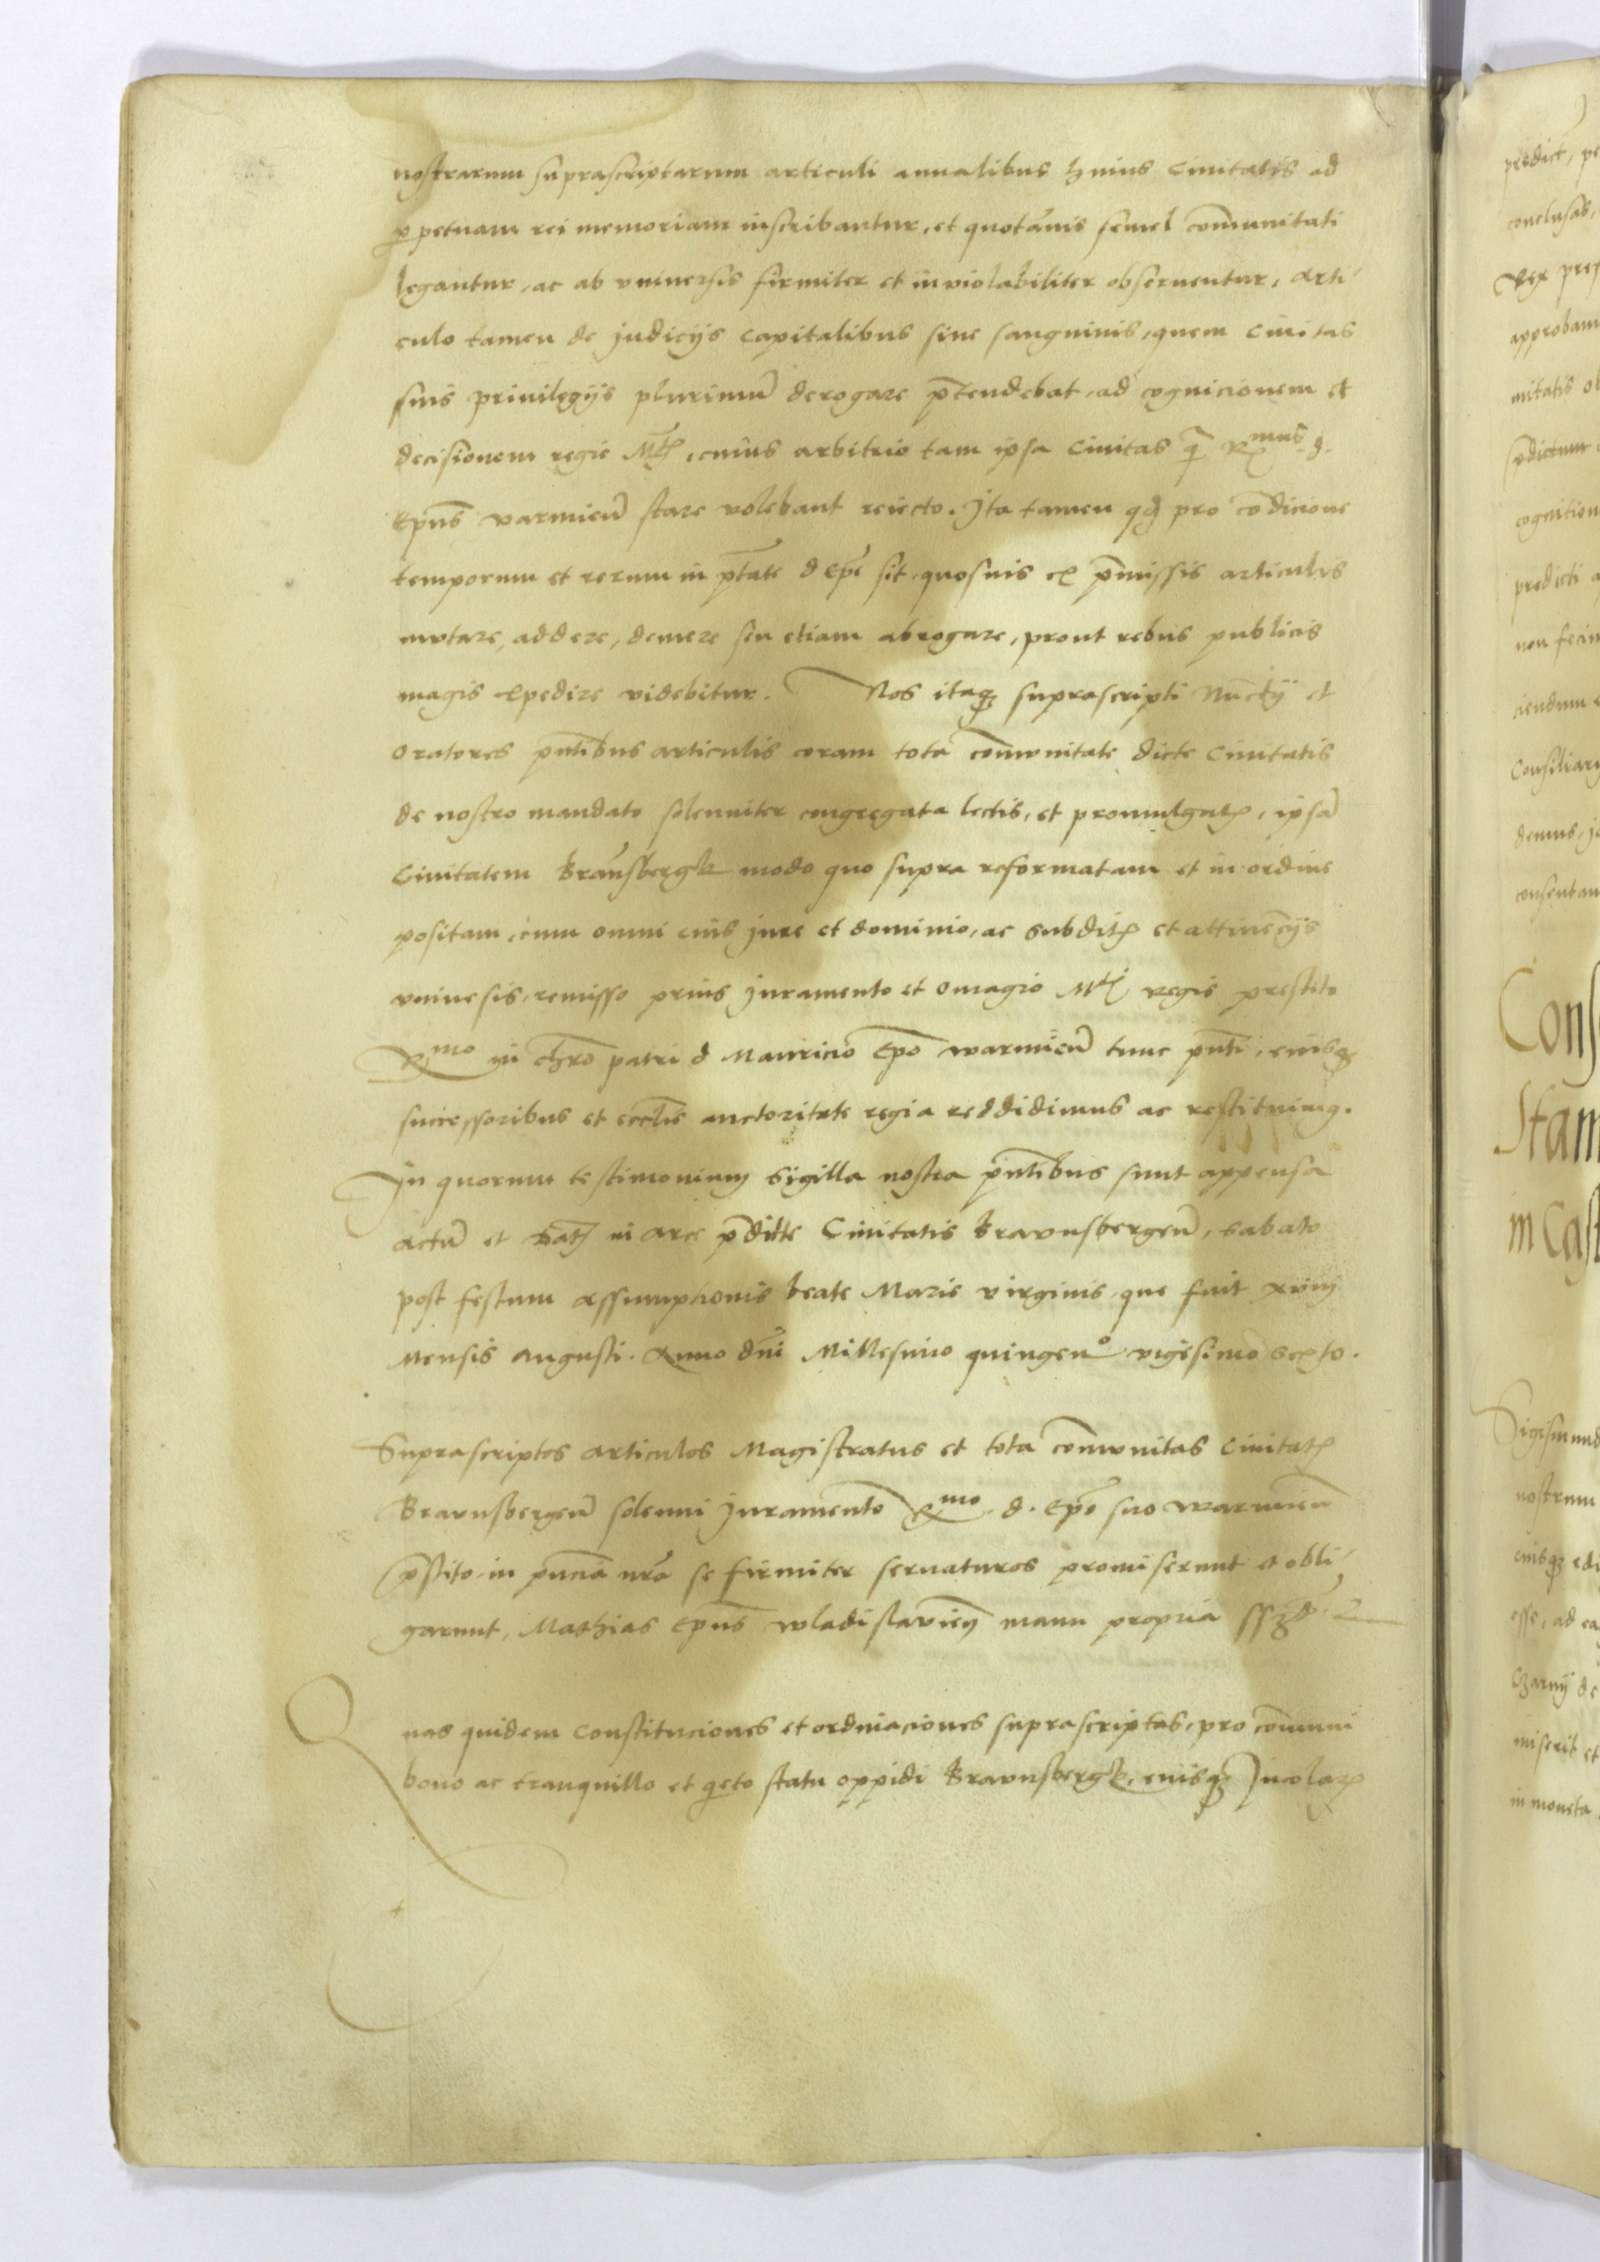 nostrarum suprascriptarum articuli annalibus huius Ciuitatis ad
ꝑpetuam rei memoriam inscribantur, et quotãnis semel com̃unitati
legantur, ac ab vniuersis firmiter et inviolabiliter obseruentur, Arti
culo tamen de judicijs capitalibus siue sanguinis, quem Ciuitas
suis priuilegijs plurimũ derogare p̃tendebat, ad cognicionem et
decisionem regie M̃tꝭ, cuius arbitrio tam ipsa Ciuitas q̃ Rmus d.
Ep̃us varmieñ stare volebant reiecto. Ita tamen qđ pro condicione
temporum et rerum in p̃tate d Ep̃i sit, quosuis ex p̃missis articulis
mutare, addere, demere seu etiam abrogare, prout rebus publicis
magis expedire videbitur. Nos itaqꝫ suprascripti Nuncij et
Oratores p̃ntibus articulis coram tota com̃unitate dicte Ciuitatis
de nostro mandato solenniter congregata lectis, et promulgatꝭ, ipsã
Ciuitatem Braũsbergk modo quo supra reformatam et in ordine
positam, cum omni eius jure et dominio, ac subditꝭ et attinẽcijs
vniuersis, remisso prius juramento et omagio Mti Regie prestito
Rmo in chr̃o patri d Mauricio Ep̃o warmieñ tunc p̃nti, eiusqꝫ
successoribus et eccl̃ie auctoritate regia reddidimus ac restituimꝰ.
In quorum testimonium Sigilla nostra p̃ntibus sunt appensa
Actũ et datꝭ in arce p̃dicte Ciuitatis Braunsbergeñ, sabato
post festum Assumptionis beate Marie virginis, que fuit xviij
Mensis Augusti. Anno dñi Millesimo quingenᵒ vigesimo sexto.
Suprascriptos articulos Magistratus et tota com̃unitas Ciuitatꝭ
Braunsbergeñ solenni juramento Rmo d. Ep̃o suo warmieñ
p̃stito, in p̃ncia nr̃a se firmiter seruaturos promiserunt et obli
garunt, Mathias Ep̃us wladislavieñ manu propria ssꝫt
Quas quidem Constituciones et ordinaciones suprascriptas, pro com̃uni
bono ac tranquillo et q̃eto statu oppidi Braunsbergk, eiusqꝫ Incolarꝫ